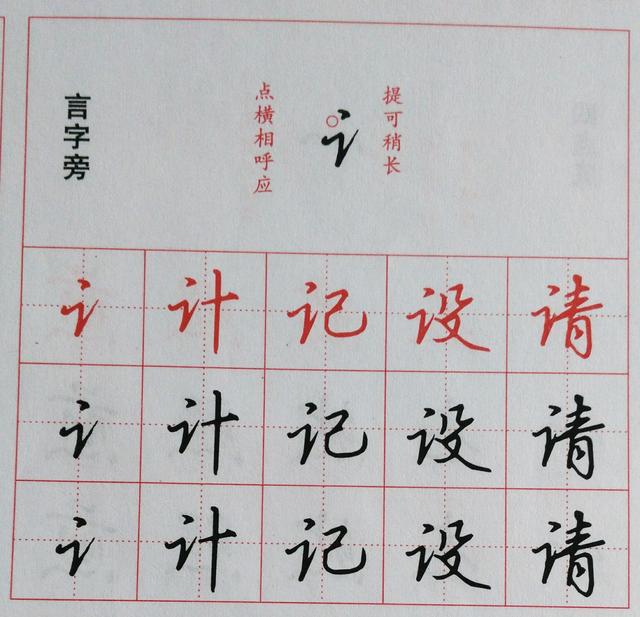 言字旁
点横相呼应
讠
提可稍长
讠计记设请
讠计记设请
讠计记设请